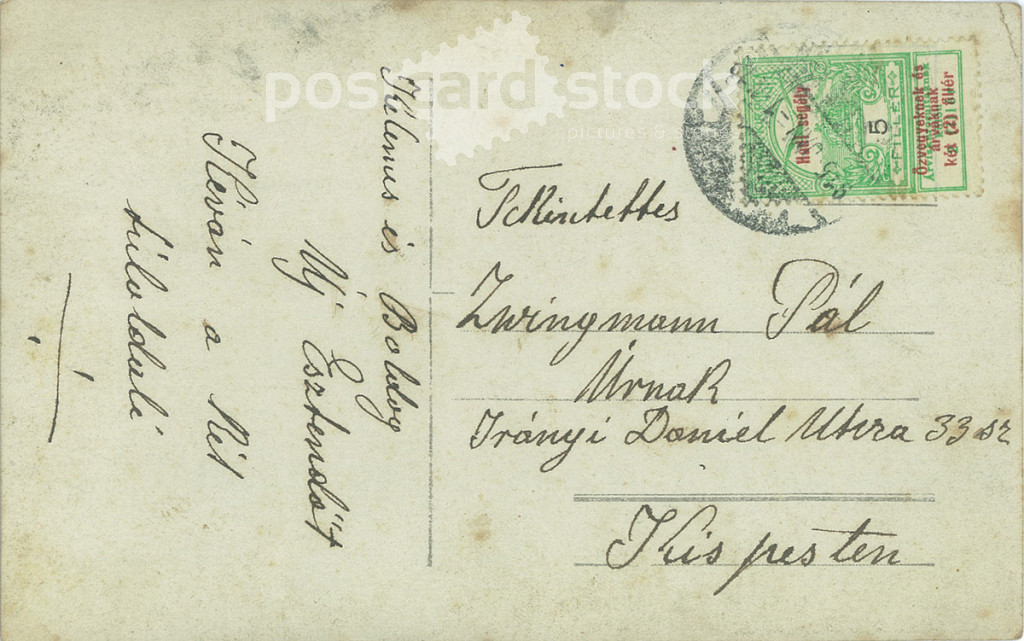 postcard stock
pictures &
Kelemes és Boldog
Új Esztendőt
Kíván a Két
túloldali
Tekintettes
Zwingmann Pál
Úrnak
Irányi Daniel Utcza 33 sz
Kispesten
Hadi segély
5
FILLÉR
Özvegyeknek és
árváknak
két (2) fillér